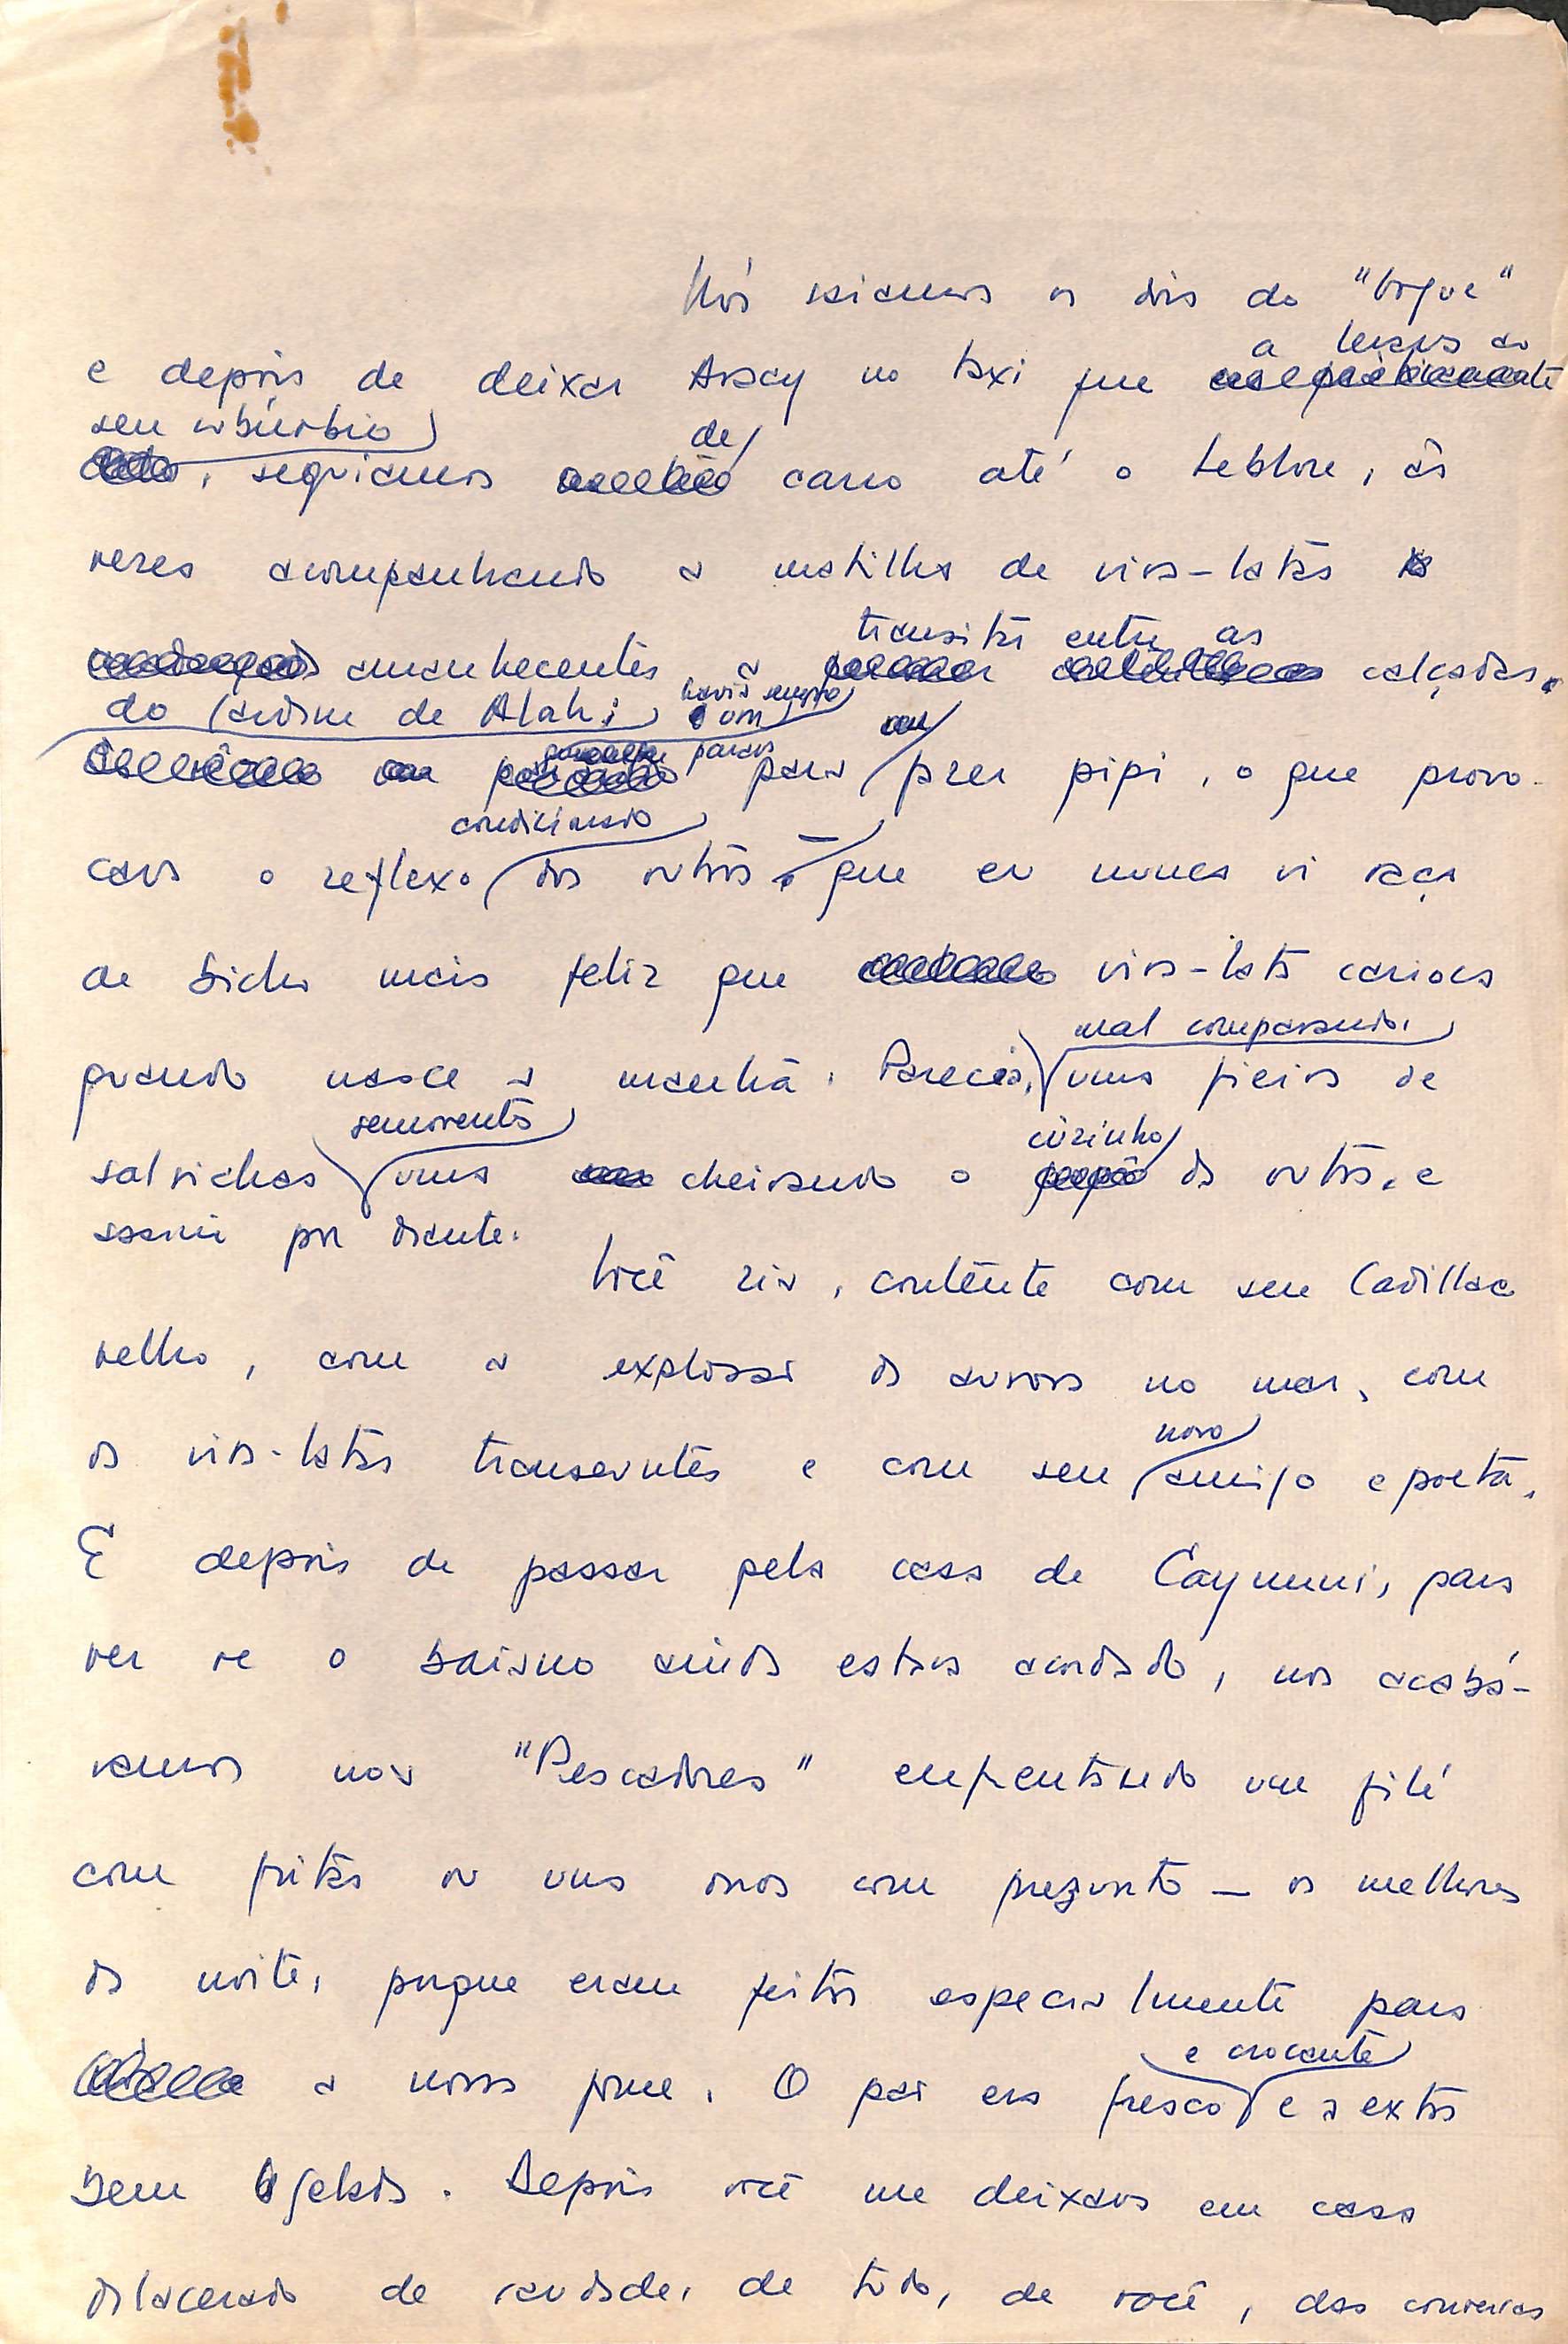 Nós saíamos os dois do "Vogue"
a levava ao
e depois de deixar Aracy no taxi que
seu subúrbio
de
, seguíamos carro até o Leblon, às
vezes acompanhando a matilha de vira-latas
transitar entre as
amanhecentes a calçadas
do Jardim de Alah; havia sempre um
parava para fazer pipi, o que provo-
condicionado
cava o reflexo dos outros — que eu nunca vi raça
de bicho mais feliz que vira-lata carioca
mal comparando,
quando nasce a manhã. Parecia, uma fieira de
semovente
cuzinho
salsichas umas cheirando o da outra, e
assim por diante.
Você ria, contente com seu Cadillac
velho, com a explosão da aurora no mar, com
novo
os vira-latas transeuntes e com seu amigo e poeta.
E depois de passar pela casa de Caymmi, para
ver se o baiano ainda estava acordado, nos acabá-
vamos nos "Pescadores" enfrentando um filé
com fritas ou uns ovos com presunto — os melhores
da noite, porque eram feitos especialmente para
e crocante
a nossa fome. O pão era fresco e a extra
bem gelada. Depois você me deixava em casa
dilacerado de saudade, de tudo, de você, das conversas